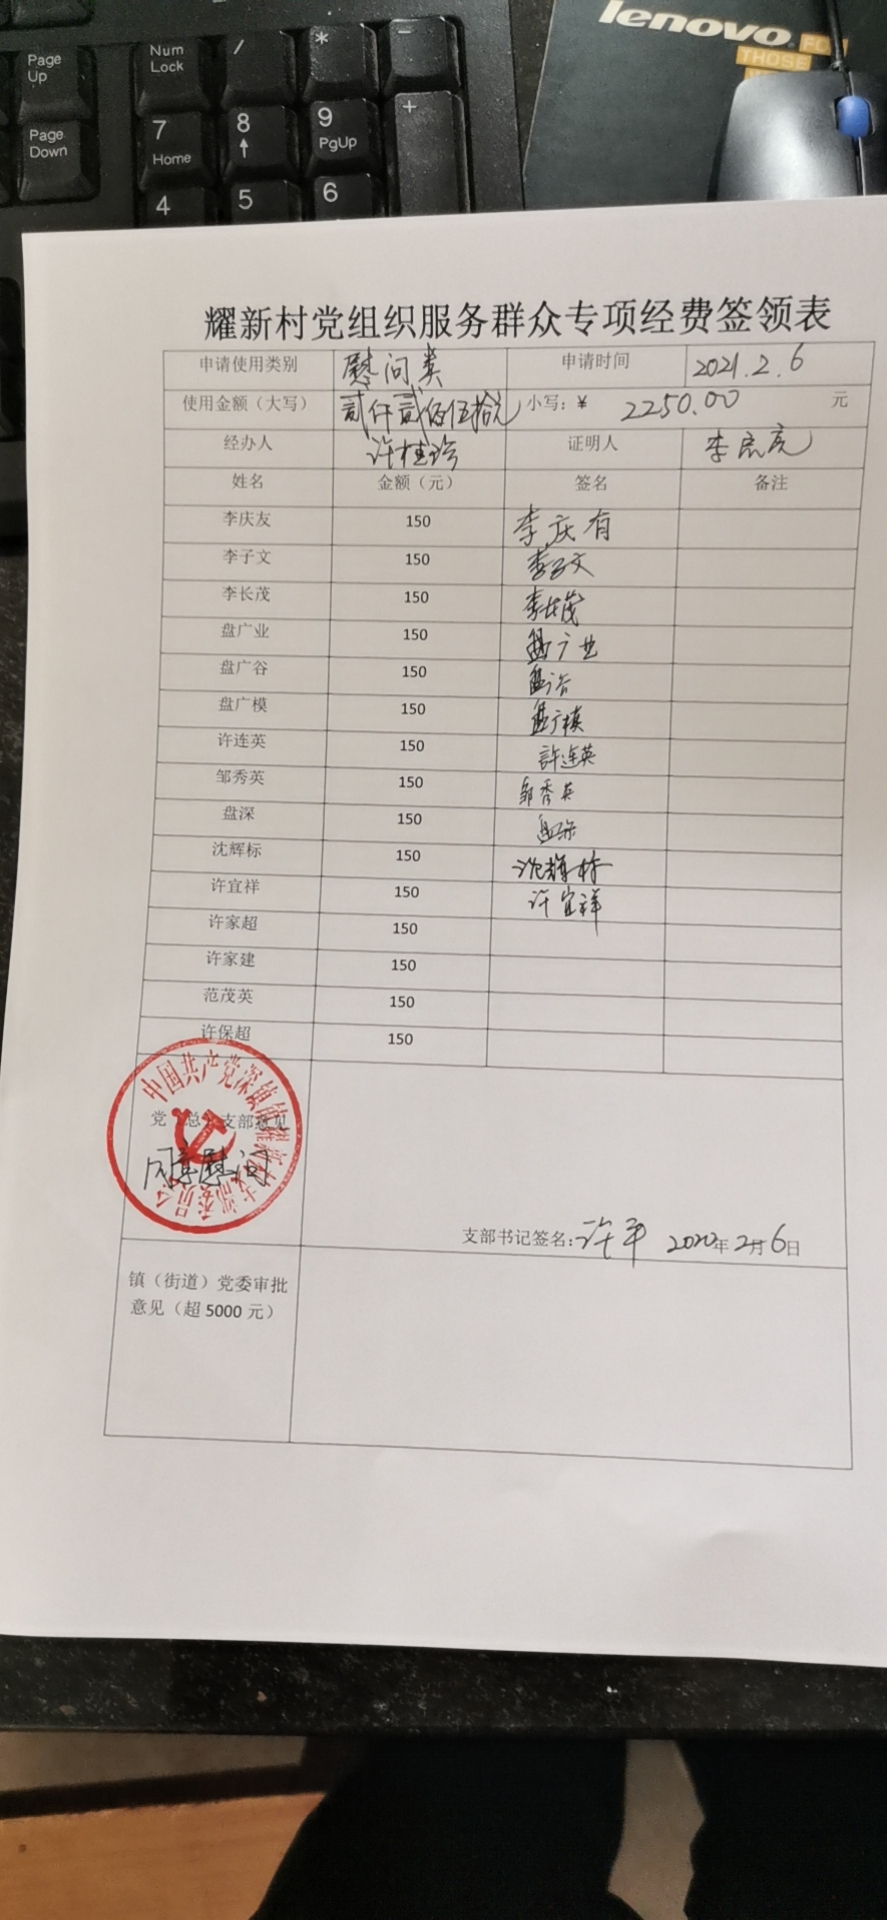 Page Up
Num Lock
/
*
-
Page Down
7 Home
8
9 PgUp
+
4
5
6
lenovo
THOSE
耀新村党组织服务群众专项经费签领表
申请使用类别 慰问类 申请时间 2021.2.6
使用金额（大写） 贰仟贰佰伍拾元 小写：¥ 2250.00 元
经办人 许桂珍 证明人 李
姓名 金额（元） 签名 备注
李庆友 150 李庆有
李子文 150 李子文
李长茂 150 李长茂
盘广业 150 盘广业
盘广谷 150 盘广谷
盘广模 150 盘广模
许连英 150 許连英
邹秀英 150 邹秀英
盘深 150 盘深
沈辉标 150 沈辉标
许宜祥 150 许宜祥
许家超 150
许家建 150
范茂英 150
许保超 150
中国共产党深镇镇耀新村支部委员会
党（总）支部意见
同意慰问
支部书记签名：许平 2020年2月6日
镇（街道）党委审批
意见（超 5000 元）